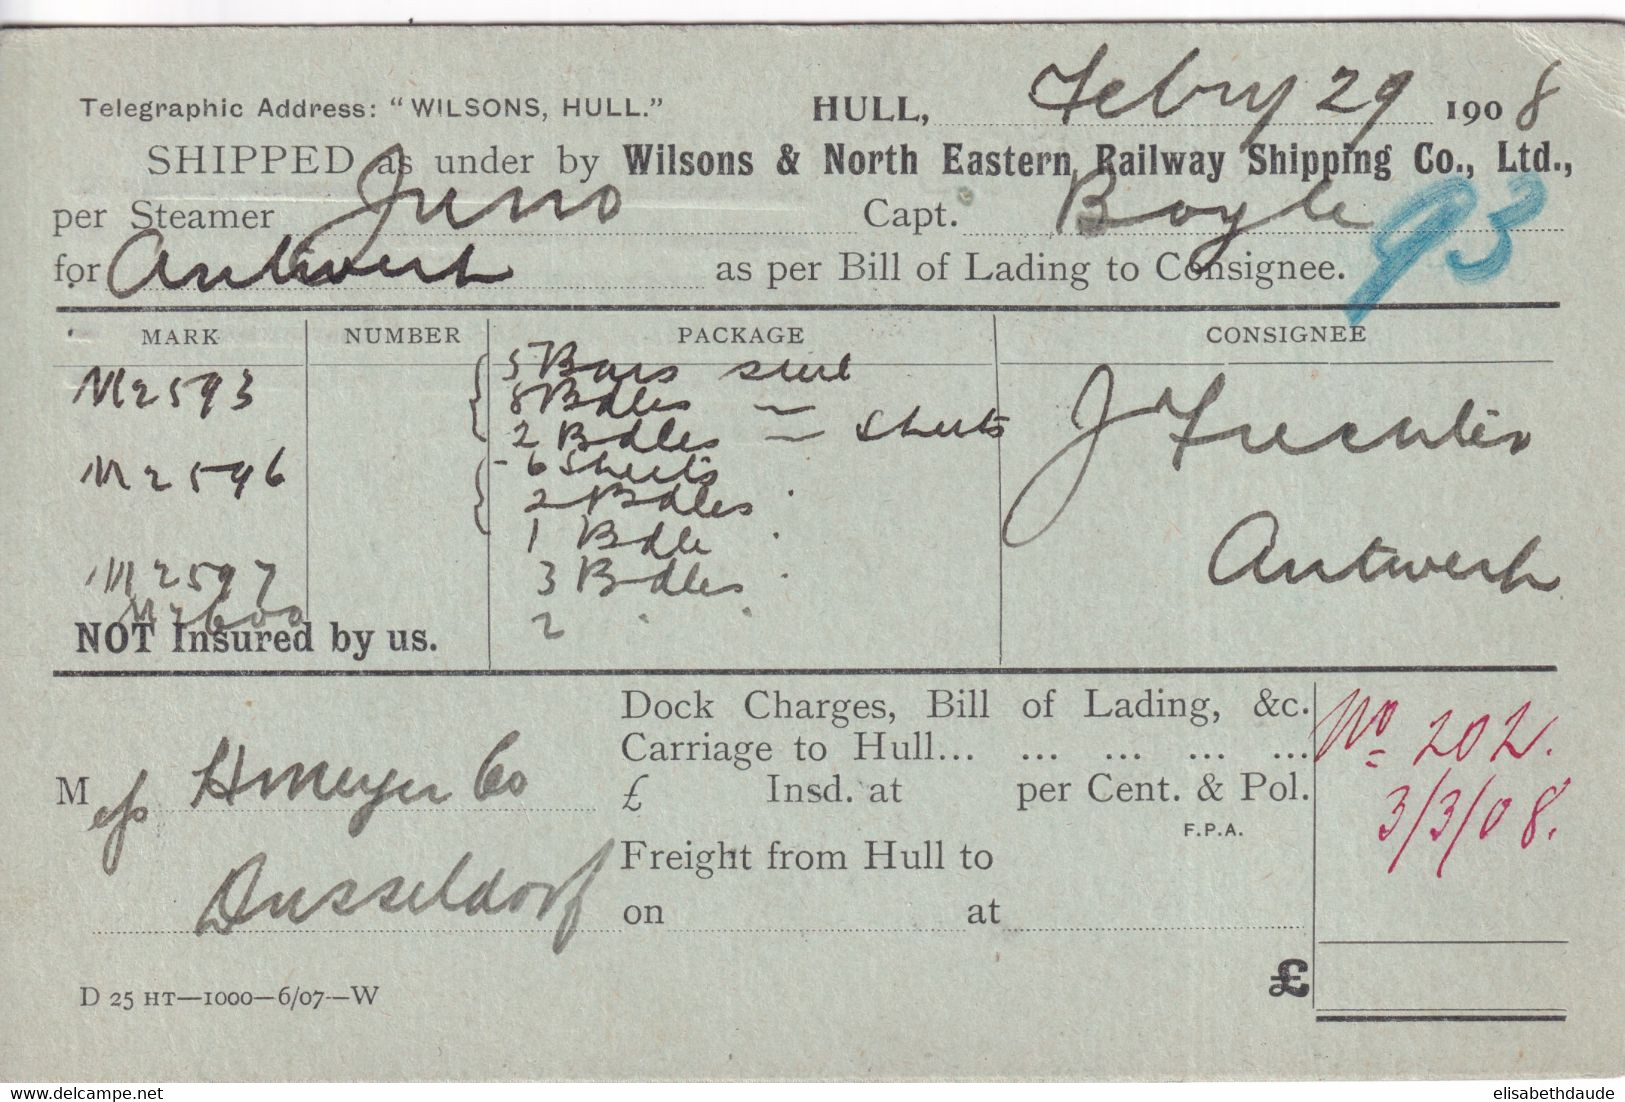 Telegraphic Address: "WILSONS, HULL." HULL, Febry 29 1908
SHIPPED as under by Wilsons & North Eastern Railway Shipping Co., Ltd.,
per Steamer Juno Capt. Boyle 93
for Antwerp as per Bill of Lading to Consignee.
MARK NUMBER PACKAGE CONSIGNEE
M 2593 5 Bars steel
8 Bdles
2 Bdles Sheets J
M 2596 6 Sheets
2 Bdles
1 Bdle Antwerp
M 2597 3 Bdles
M 2600 2
NOT Insured by us.
Dock Charges, Bill of Lading, &c. No 202.
Carriage to Hull... ... ... ... ...
M H Meyer Co £ Insd. at per Cent. & Pol. 3/3/08.
F.P.A.
Dusseldorf Freight from Hull to
on at
£
D 25 HT—1000—6/07—W
elisabethdaude